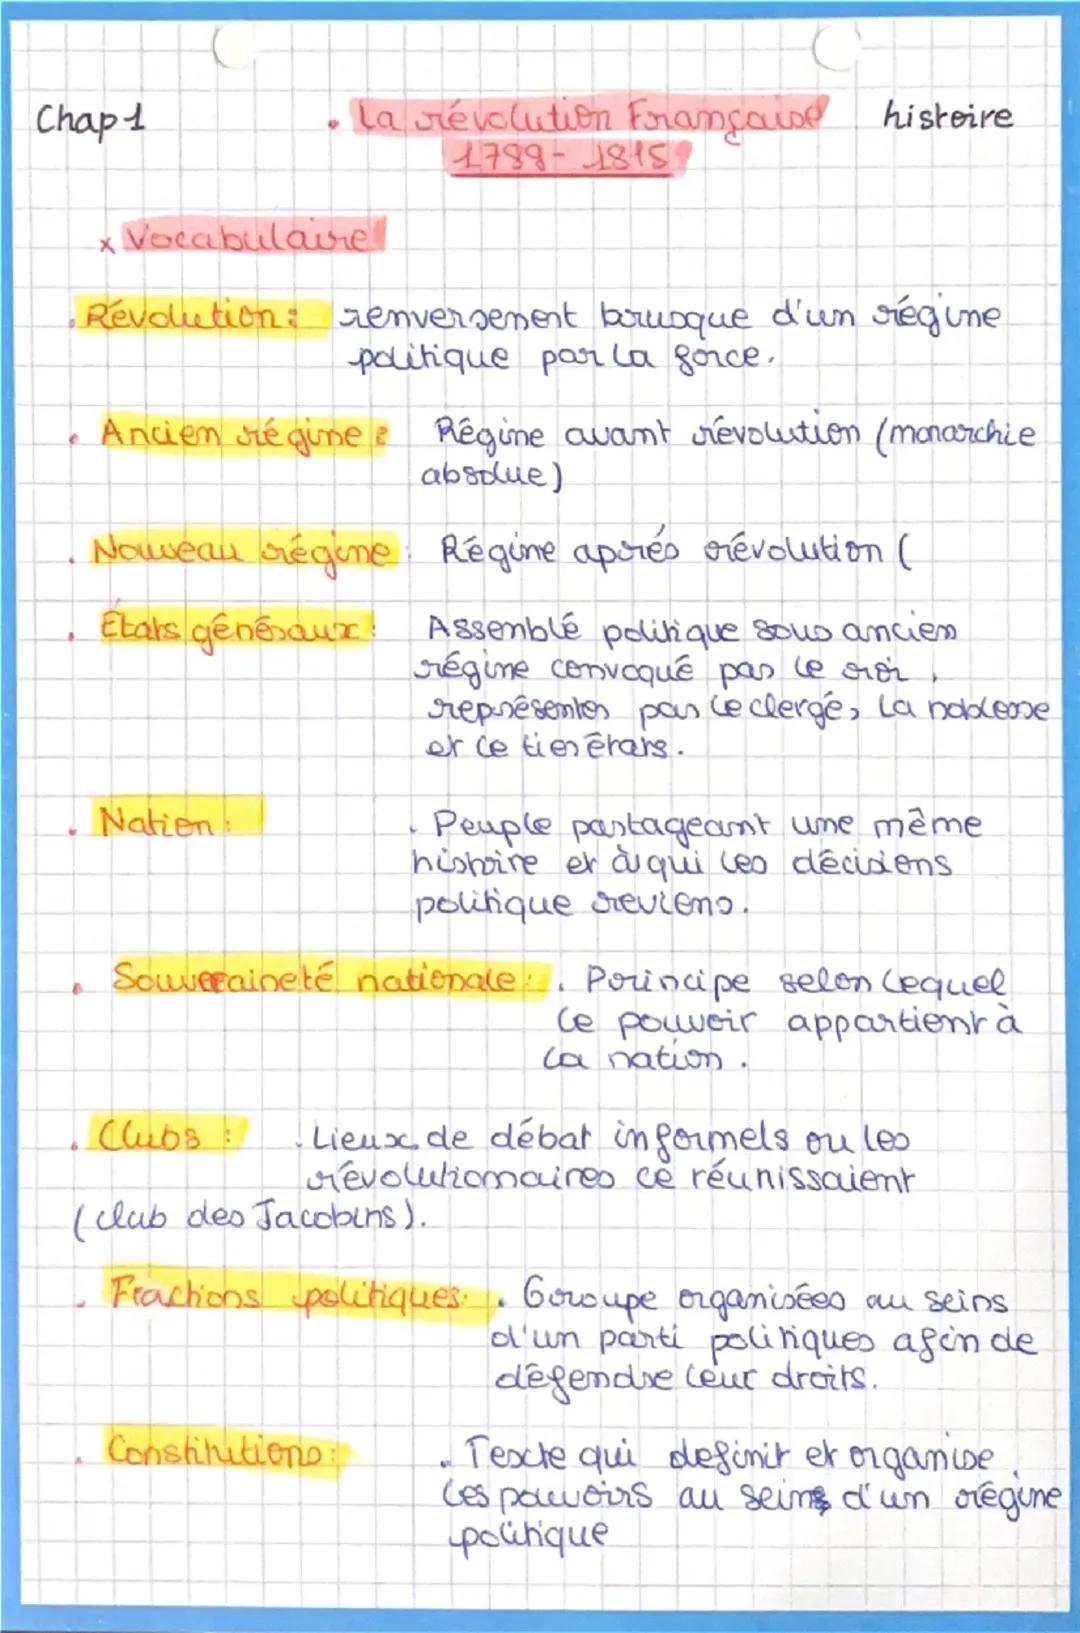 Chap 1 . La révolution Française histoire
1789 - 1815
x Vocabulaire
. Révolution : renversement brusque d'un régime
politique par la force.
. Ancien régime : Régime avant révolution (monarchie
absolue)
. Nouveau régime : Régime aprés révolution (
. États généraux : Assemblé politique sous ancien
régime convoqué par le roi,
représentés par le clergé, la noblesse
et le tier états.
. Nation : . Peuple partageant une même
histoire et à qui les décisions
politique reviens.
. Souveraineté nationale : . Principe selon lequel
le pouvoir appartient à
la nation.
. Clubs : . Lieux de débat informels ou les
révolutionnaires ce réunissaient
(club des Jacobins).
. Fractions politiques : . Groupe organisées au seins
d'un parti politiques afin de
défendre leur droits.
. Constitutions : . Texte qui définit et organise
les pouvoirs au seins d'un régime
politique